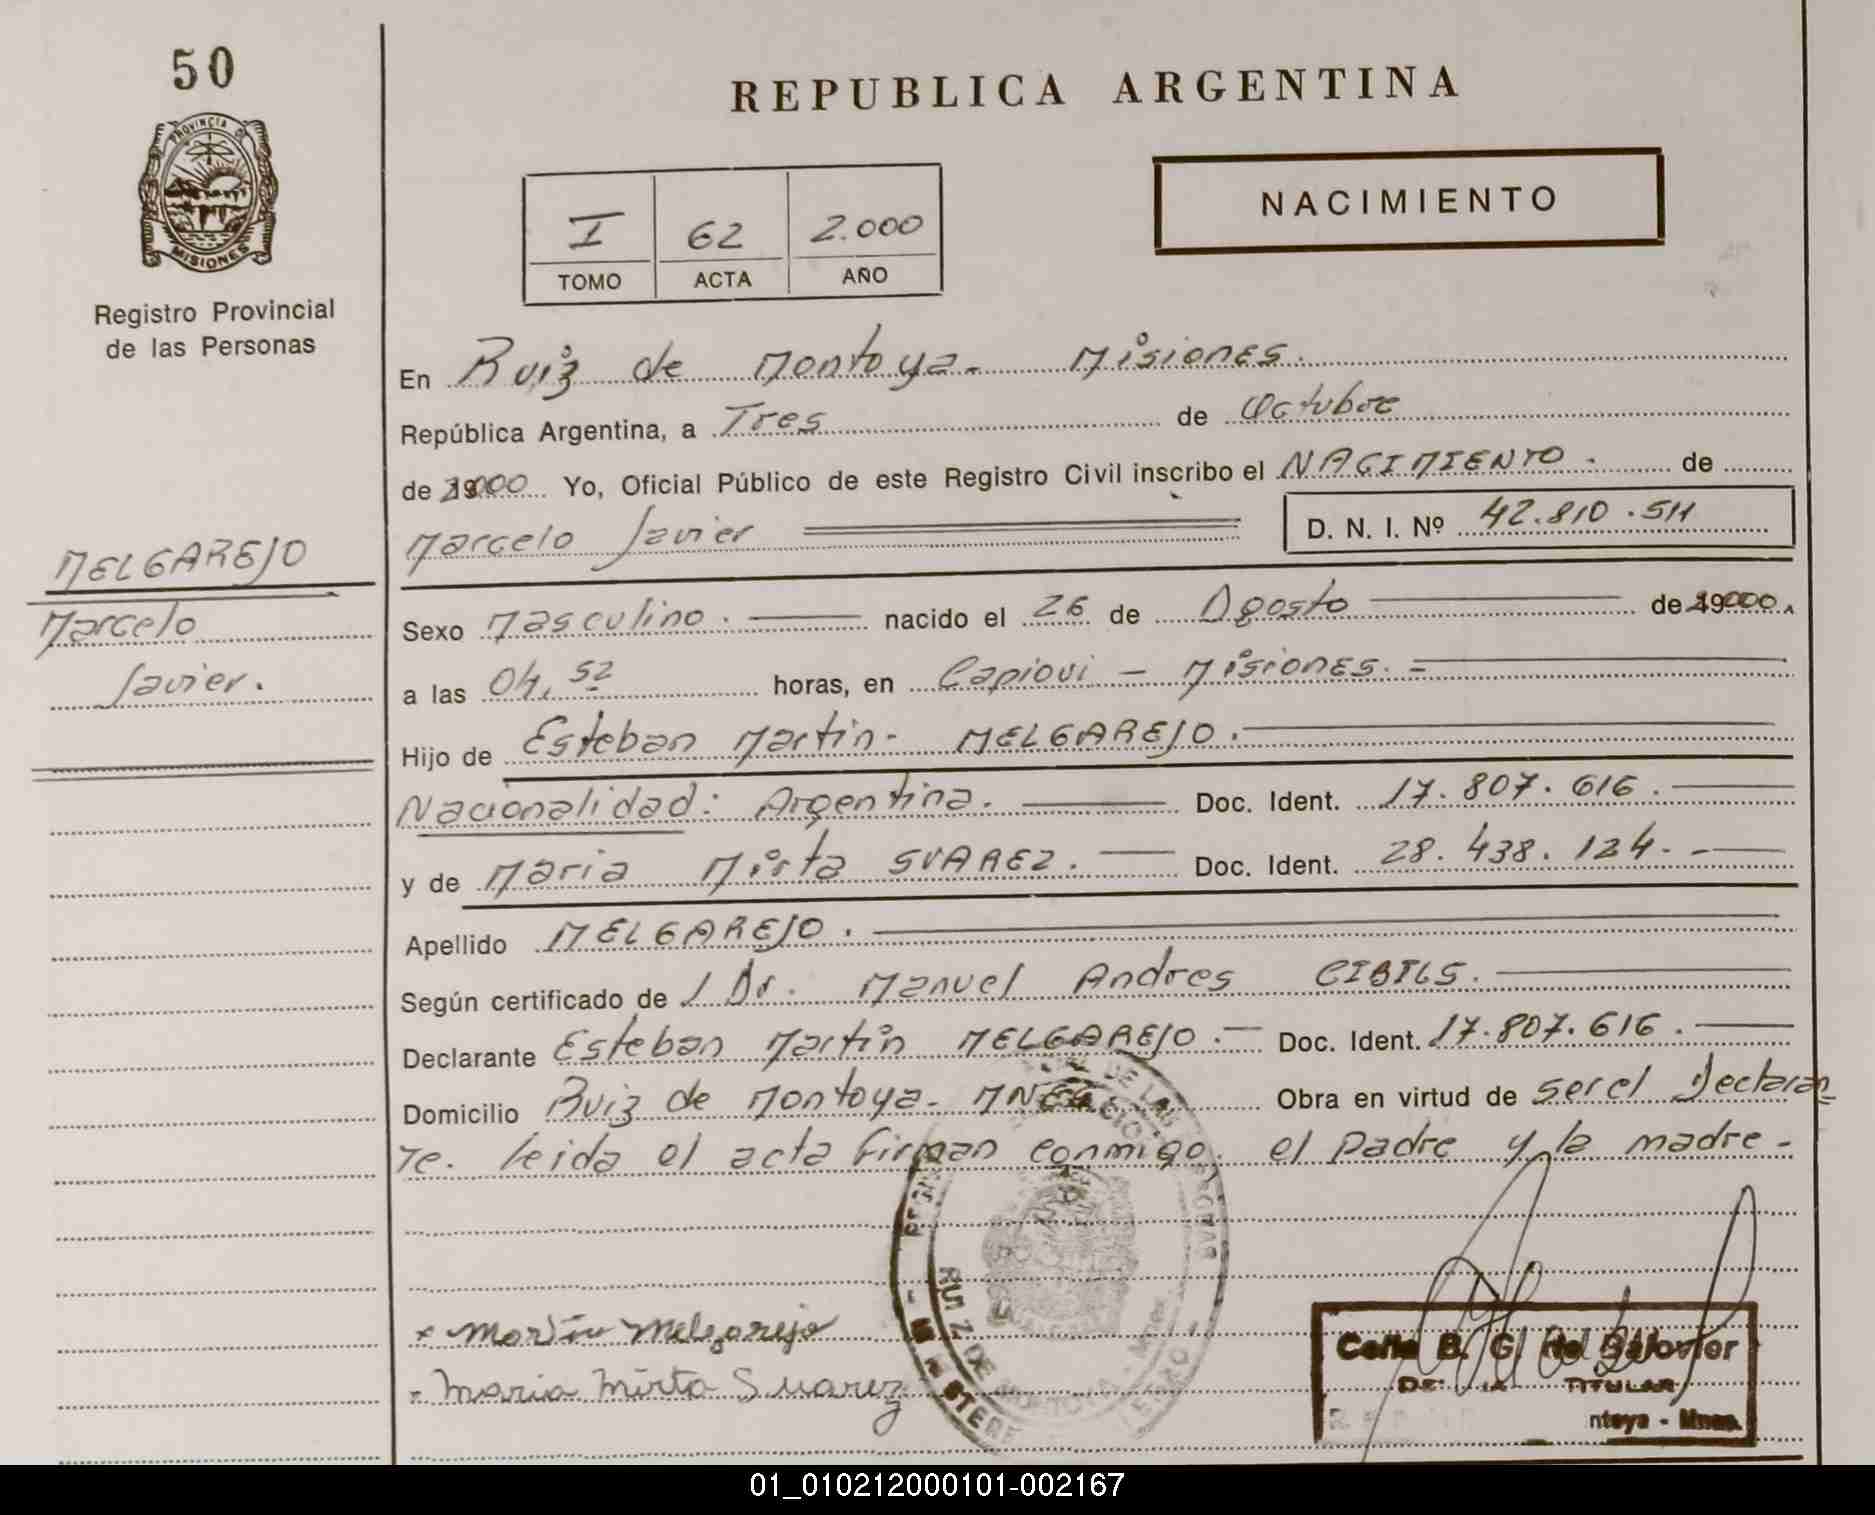 50
REPUBLICA ARGENTINA
PROVINCIA DE
MISIONES
NACIMIENTO
I 62 2.000
TOMO ACTA AÑO
Registro Provincial
de las Personas
En Ruiz de Montoya - Misiones.
República Argentina, a Tres de Octubre
de 2000 Yo, Oficial Público de este Registro Civil inscribo el NACIMIENTO. de
Marcelo Javier D. N. I. Nº 42.810.511
MELGAREJO
Marcelo
Javier.
Sexo Masculino. nacido el 26 de Agosto de 2000
a las 04,52 horas, en Capiovi - Misiones.
Hijo de Esteban Martin - MELGAREJO.
Nacionalidad: Argentina. Doc. Ident. 17.807.616.
y de Maria Mirta SUAREZ. Doc. Ident. 28.438.124.
Apellido MELGAREJO.
Según certificado de Dr. Manuel Andres CIBILS.
Declarante Esteban Martin MELGAREJO. Doc. Ident. 17.807.616.
Domicilio Ruiz de Montoya - MNES. Obra en virtud de ser el Declaran
Te. leida el acta firman conmigo. el padre y la madre -
RUIZ DE MONTOYA - Mnes.
x Martin Melgarejo
x Maria Mirta Suarez
B. G. de
TITULAR
ntoya - Mnes.
01_010212000101-002167